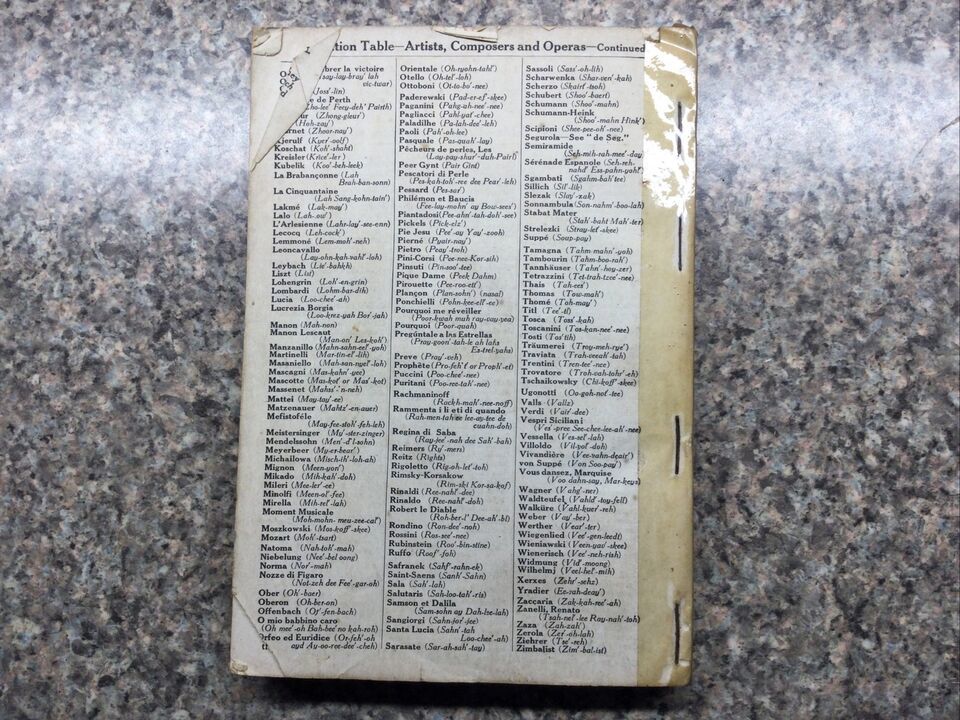 tion Table—Artists, Composers and Operas—Continued
brer la victoire
(say-lay-bray' lah
vic-twar)
(Joss'-lin)
de Perth
(Zho-lee' Fecy-deh' Pairth)
ur (Zhong-gleur')
(Hoh-zay')
rnet (Zheor-nay')
Kjerulf (Kyer'-oolf)
Koschat (Koh'-shaht)
Kreisler (Krice'-ler)
Kubelik (Koo'-beh-leek)
La Brabançonne (Lah
Brah-ban-sonn)
La Cinquantaine
(Lah Sang-kohn-tain')
Lakmé (Lak-may')
Lalo (Lah-ow')
L'Arlesienne (Lahr-lay'-see-enn)
Lecocq (Leh-cock')
Lemmoné (Lem-moh'-neh)
Leoncavallo
(Lay-ohn-kah-vahl'-loh)
Leybach (Lie'-bahkh)
Liszt (List)
Lohengrin (Loh'-en-grin)
Lombardi (Lohm-bar-dih)
Lucia (Loo-chee'-ah)
Lucrezia Borgia
(Loo-krez-yah Bor'-jah)
Manon (Mah-non)
Manon Lescaut
(Man-on' Les-koh')
Manzanillo (Mahn-sahn-eel'-yoh)
Martinelli (Mar-tin-el'-lih)
Masaniello (Mah-son-nyel'-loh)
Mascagni (Mas-kahn'-yee)
Mascotte (Mas-kot' or Mas'-kot)
Massenet (Mahss'-'n-neh)
Mattei (May-tay'-ee)
Matzenauer (Mahtz'-en-auer)
Mefistoféle
(May-fee-stoh'-feh-leh)
Meistersinger (My'-ster-zinger)
Mendelssohn (Men'-d'l-sohn)
Meyerbeer (My-er-bear')
Michailowa (Misch-ih'-loh-ah)
Mignon (Meen-yon')
Mikado (Mih-kah'-doh)
Mileri (Mee-ler'-ee)
Minolfi (Meen-ol'-fee)
Mirella (Mih-rel'-lah)
Moment Musicale
(Moh-mohn- meu-zee-cal')
Moszkowski (Mos-koff'-skee)
Mozart (Moh'-tsart)
Natoma (Nah-toh'-mah)
Niebelung (Nee'-bel oong)
Norma (Nor'-mah)
Nozze di Figaro
(Not-zeh dee Fee'-gar-oh)
Ober (Oh'-baer)
Oberon (Oh-ber-on)
Offenbach (Of'-fen-bach)
O mio babbino caro
(Oh mee'-oh Bah-bee' no kah-roh)
Orfeo ed Euridice (Or-feh'-oh
ayd Ay-oo-ree-dee'-cheh)
Orientale (Oh-ryohn-tahl')
Otello (Oh-tel'-loh)
Ottoboni (Ot-to-bo'-nee)
Paderewski (Pad-er-ef'-skee)
Paganini (Pahg-ah-nee'-nee)
Pagliacci (Pahl-yat'-chee)
Paladilhe (Pa-lah-dee'-leh)
Paoli (Pah'-oh-lee)
Pasquale (Pas-quah'-lay)
Pêcheurs de perles, Les
(Lay pay-shur'-duh-Pairl)
Peer Gynt (Pair Gint)
Pescatori di Perle
(Pes-kah-toh'-ree dee Pear'-leh)
Pessard (Pes-sar')
Philémon et Baucis
(Fee-lay-mohn' ay Bow-sees')
Piantadosi (Pee-ahn'-tah-doh'-see)
Pickels (Pick-elz')
Pie Jesu (Pee'-ay Yay'-zooh)
Pierné (Pyair-nay')
Pietro (Peay'-troh)
Pini-Corsi (Pee-nee-Kor-sih)
Pinsuti (Pin-soo'-tee)
Pique Dame (Peek Dahm)
Pirouette (Pee-roo-et')
Plançon (Plan-sohn') (nasal)
Ponchielli (Pohn-kee-ell'-ee)
Pourquoi me réveiller
(Poor-kwah muh ray-vay-yea)
Pourquoi (Poor-quah)
Pregúntale a las Estrellas
(Pray-goon'-tah-le ah lahs
Es-trel-yahs)
Preve (Pray'-veh)
Prophète (Pro-feh't or Proph'-et)
Puccini (Poo-chee'-nee)
Puritani (Poo-ree-tah'-nee)
Rachmaninoff
(Rackh-mah'-nee-noff)
Rammenta i li eti di quando
(Rah-men-tah'ee lee-ay-tee de
cuahn-doh)
Regina di Saba
(Ray-jee'-nah dee Sah'-bah)
Reimers (Ry'-mers)
Reitz (Rights)
Rigoletto (Rig-oh-let'-toh)
Rimsky-Korsakow
(Rim-ski Kor-sa-kof)
Rinaldi (Ree-nahl'-dee)
Rinaldo (Ree-nahl'-doh)
Robert le Diable
(Roh-ber-l' Dee-ah'-bl)
Rondino (Ron-dee'-noh)
Rossini (Ros-see'-nee)
Rubinstein (Roo'-bin-stine)
Ruffo (Roof'-foh)
Safranek (Sahf'-rahn-ek)
Saint-Saens (Sanh'-Sahn)
Sala (Sah'-lah)
Salutaris (Sah-loo-tah'-ris)
Samson et Dalila
(Sam-sohn ay Dah-lee-lah)
Sangiorgi (Sahn-jor'-jee)
Santa Lucia (Sahn'-tah
Loo-chee'-ah)
Sarasate (Sar-ah-sah'-tay)
Sassoli (Sass'-oh-lih)
Scharwenka (Shar-ven'-kah)
Scherzo (Skairt'-tsoh)
Schubert (Shoo'-baert)
Schumann (Shoo'-mahn)
Schumann-Heink
(Shoo'-mahn Hink')
Scipioni (Shee-pee-oh'-nee)
Segurola—See "de Seg."
Semiramide
(Seh-mih-rah-mee'-day)
Sérénade Espanole (Seh-reh-
nahd' Ess-pahn-yohl')
Sgambati (Sgahm-bah'tee)
Sillich (Sil'-lik)
Slezak (Slay'-zak)
Sonnambula (Son-nahm'-boo-lah)
Stabat Mater
(Stah'-baht Mah'-ter)
Strelezki (Stray-let'-skee)
Suppé (Soup-pay)
Tamagna (Tahm-mahn'-yoh)
Tambourin (Tahm-boo-rah')
Tannhäuser (Tahn'-hoy-zer)
Tetrazzini (Tet-trah-tzee'-nee)
Thais (Tah-ees')
Thomas (Tow-mah')
Thomé (Toh-may')
Titl (Tee'-tl)
Tosca (Toss'-kah)
Toscanini (Tos-kan-nee'-nee)
Tosti (Tos'tih)
Träumerei (Troy-meh-rye')
Traviata (Trah-veeah'-tah)
Trentini (Tren-tee'-nee)
Trovatore (Troh-vah-tohr'-eh)
Tschaikowsky (Chi-koff'-skee)
Ugonotti (Oo-goh-not'-tee)
Valls (Vallz)
Verdi (Vair'-dee)
Vespri Siciliani
(Ves'-pree See-chee-lee-ah'-nee)
Vessella (Ves-sel'-lah)
Villoldo (Vil-yol'-doh)
Vivandière (Vee-vahn-deair')
von Suppé (Von Soo-pay')
Vous dansez, Marquise
(Voo dahn-say, Mar-keys)
Wagner (Vahg'-ner)
Waldteufel (Vahld'-toy-fell)
Walküre (Vahl-kuer'-reh)
Weber (Vay'-ber)
Werther (Vear'-ter)
Wiegenlied (Vee'-gen-leedt)
Wieniawski (Veen-yav'-skee)
Wienerisch (Vee'-neh-rish)
Widmung (Vid'-moong)
Wilhelmj (Veel-hel'-mih)
Xerxes (Zehr'-sehz)
Yradier (Ee-rah-deay')
Zaccaria (Zak-kah-ree'-ah)
Zanelli, Renato
(Tsah-nel'-lee Ray-nah'-toh)
Zaza (Zah-zah')
Zerola (Zer'-oh-lah)
Ziehrer (Tse'-reh)
Zimbalist (Zim'-bal-ist)